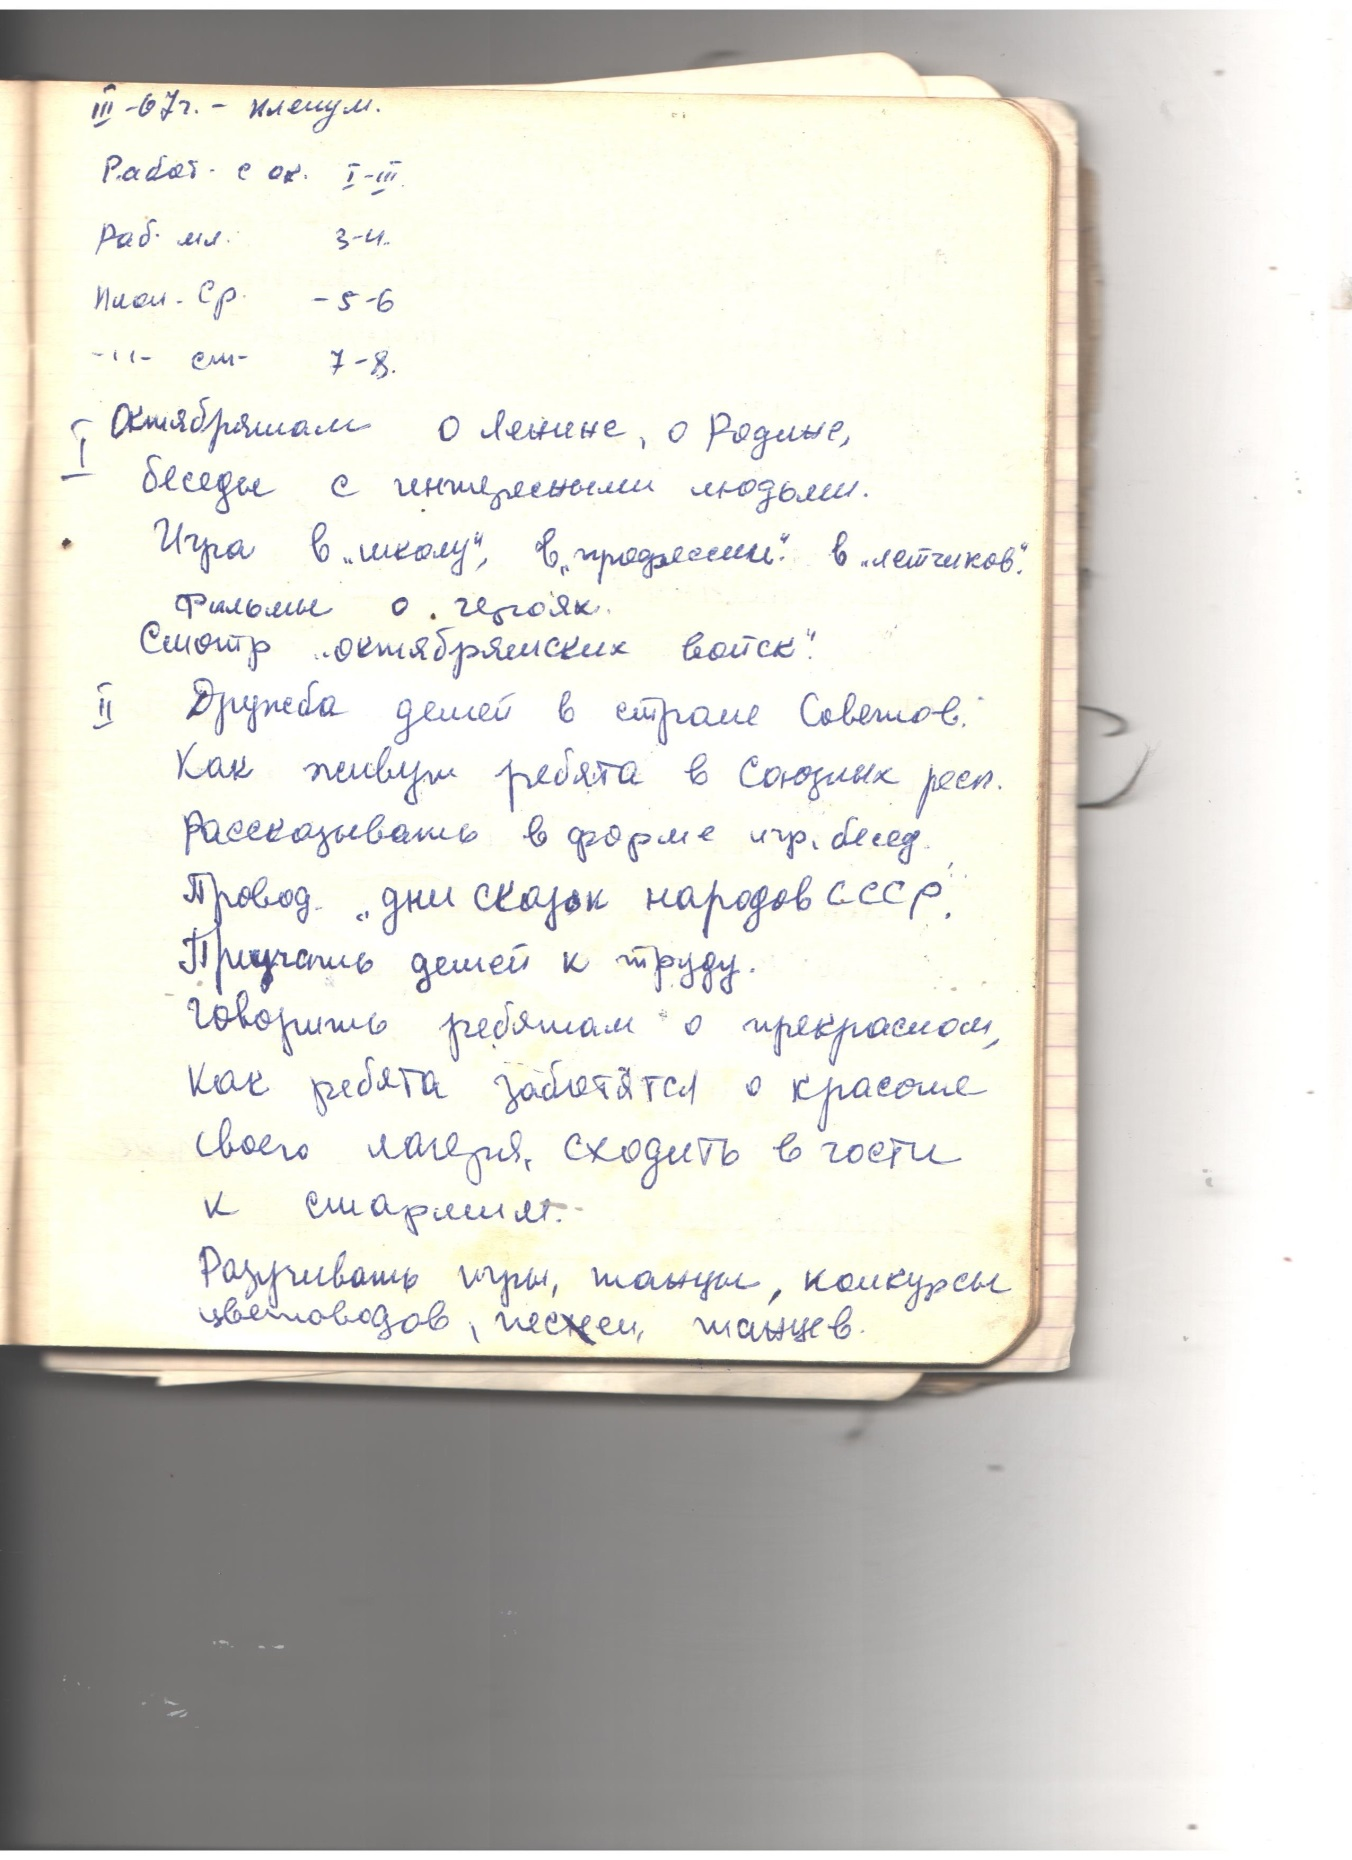 III-67г. - пленум.
Работ. с ок. I-III.
Раб. мл. 3-4.
Пион. Ср. - 5-6
-"- ст- 7-8.
I Октябрятам о Ленине, о Родине,
беседы с интересными людьми.
Игра в „школу", в „профессии". в „летчиков".
Фильмы о героях.
Смотр „октябрятских войск".
II Дружба детей в стране Советов.
Как живут ребята в Союзных респ.
Рассказывать в форме игр, бесед.
Провод. „дни сказок народов СССР".
Приучать детей к труду.
Говорить ребятам о прекрасном,
Как ребята заботятся о красоте
своего лагеря, сходить в гости
к старшим.
Разучивать игры, танцы, конкурсы
цветоводов, песен, танцев.